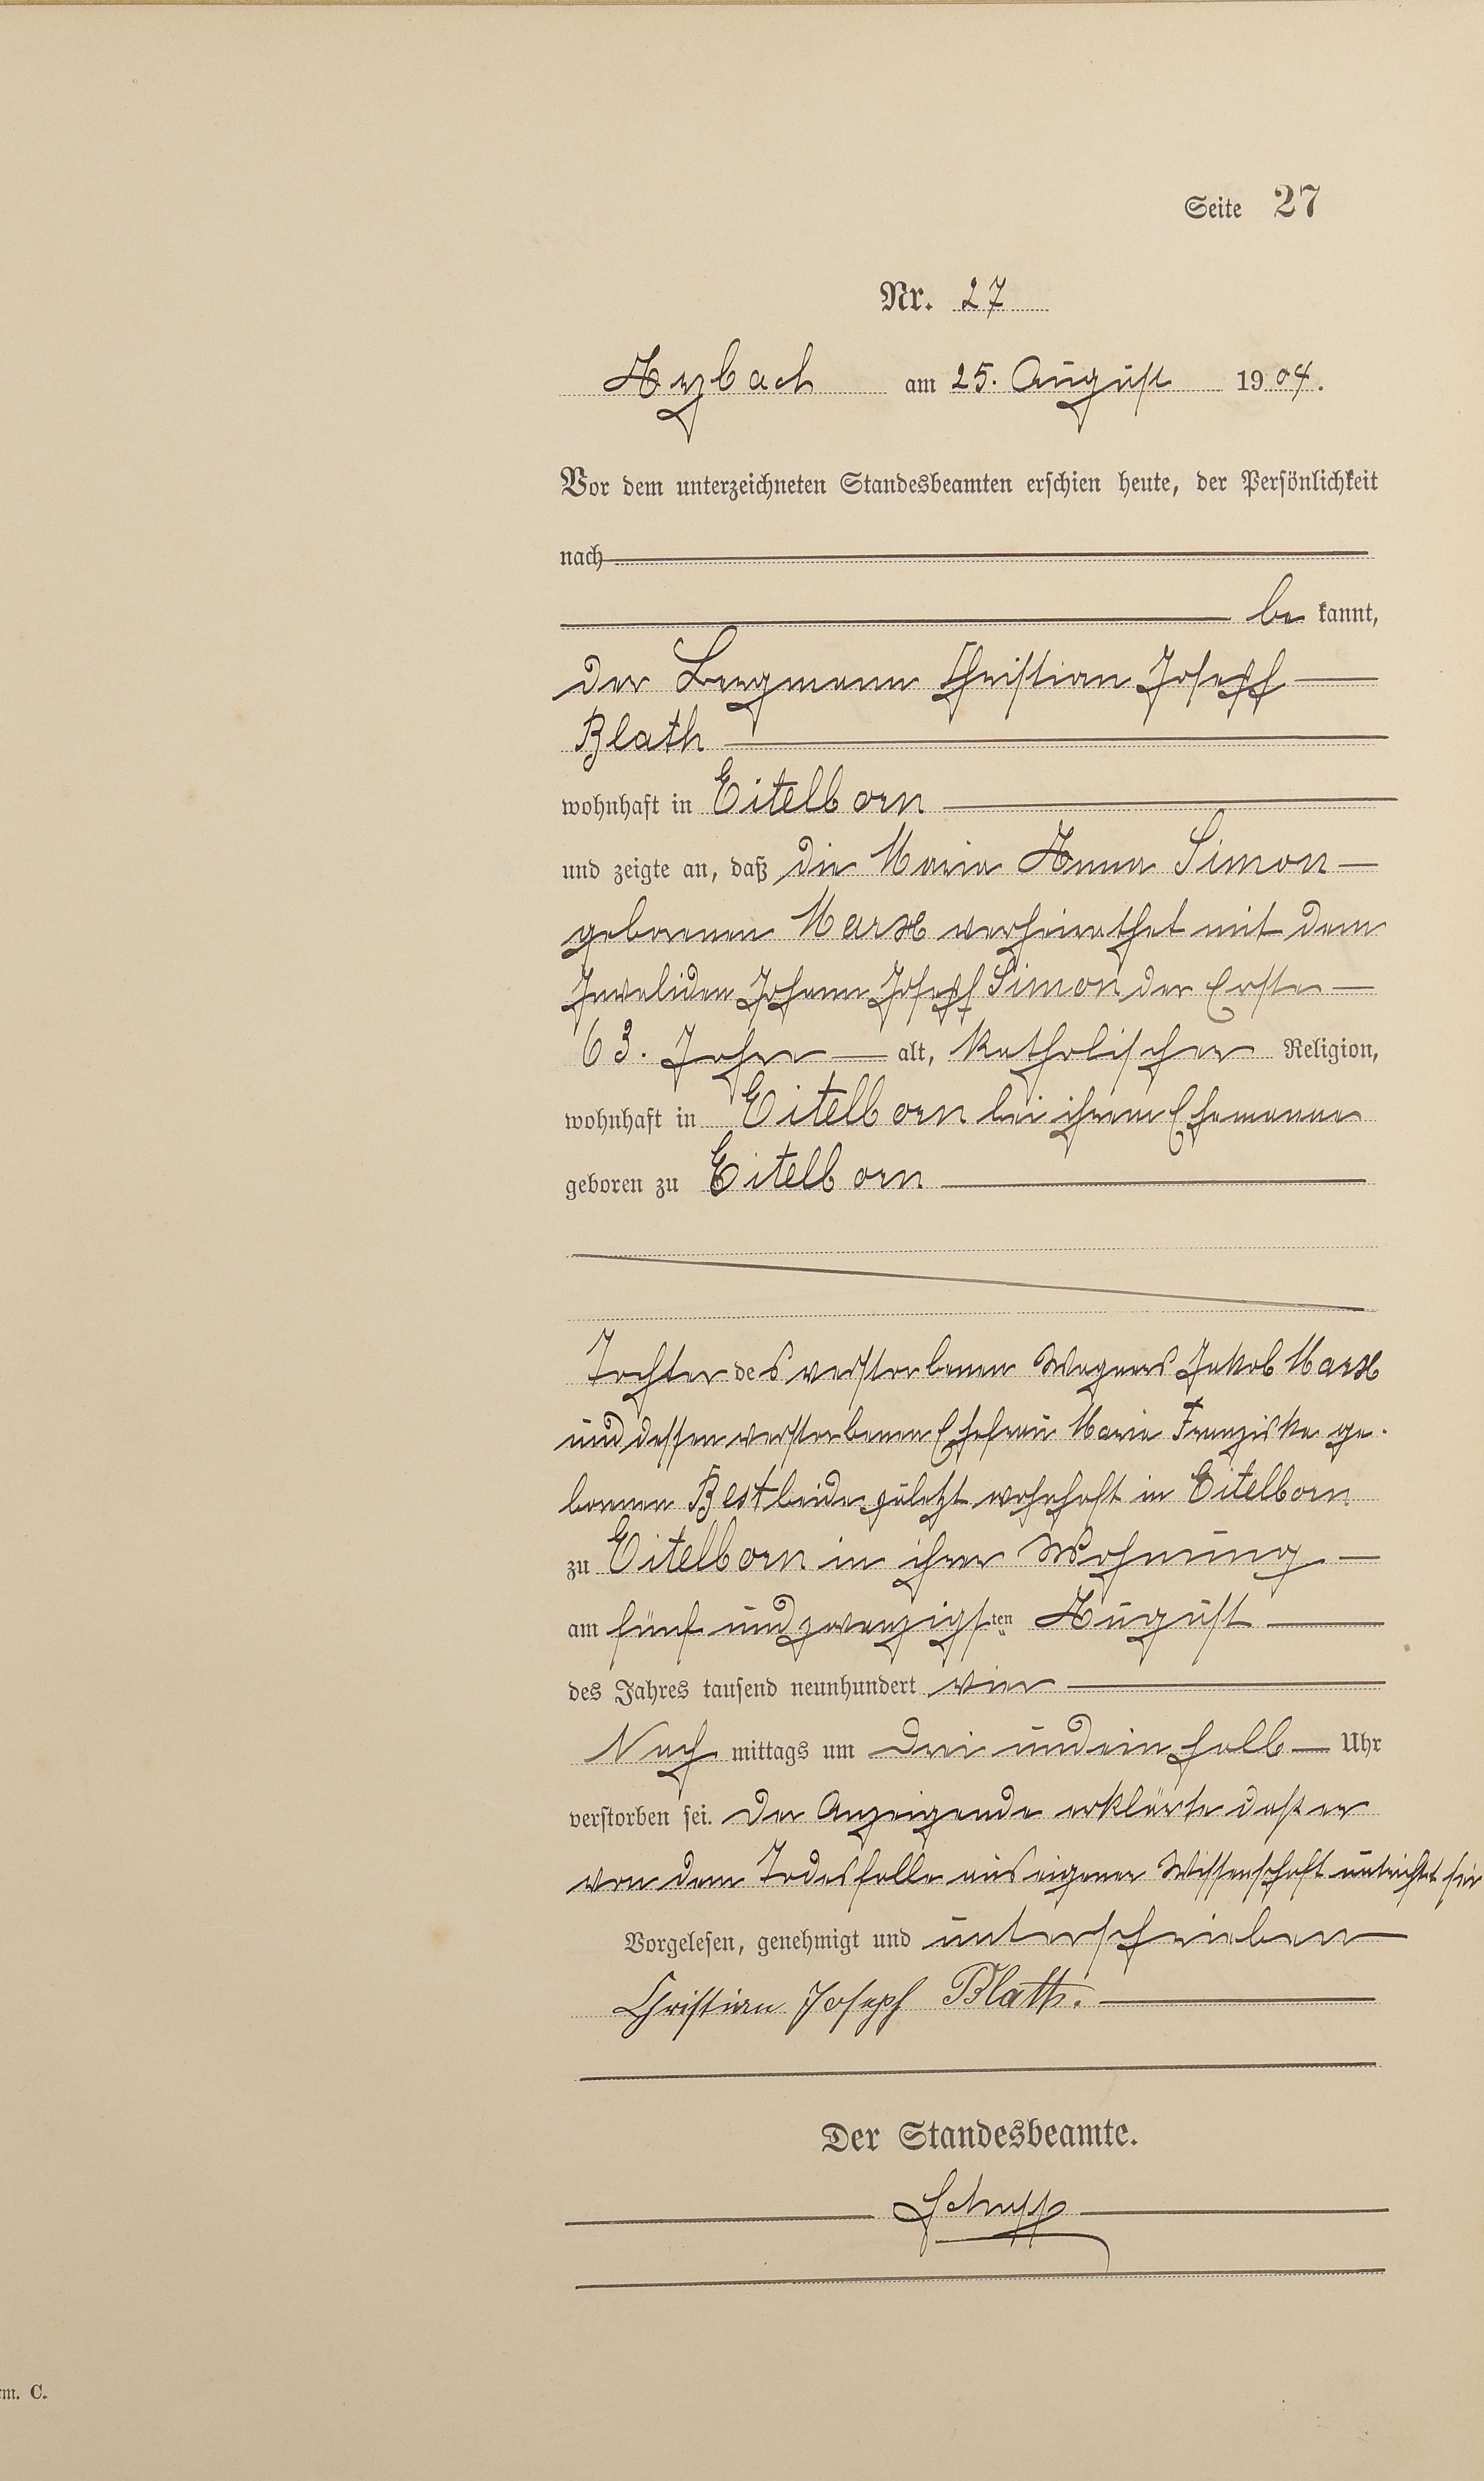 Seite 27
Nr. 27
Arzbach am 25. August 1904.
Vor dem unterzeichneten Standesbeamten erschien heute, der Persönlichkeit
nach
be kannt,
der Bergmann Christian Joseph
Blath
wohnhaft in Eitelborn
und zeigte an, daß die Maria Anna Simon
geborenen Marx verheirathet mit dem
Invaliden Johann Joseph Simon der Erste
63. Jahre alt, katholischer Religion,
wohnhaft in Eitelborn bei ihrem Ehemanne
geboren zu Eitelborn
Tochter des verstorbenen Wagners Jakob Marx
und dessen verstorbenen Ehefrau Maria Franziska ge-
borenen Best beide zuletzt wohnhaft in Eitelborn
zu Eitelborn in ihrer Wohnung
am fünf und zwanzigsten August
des Jahres tausend neunhundert vier
Nach mittags um Drei und ein halb Uhr
verstorben sei. Der Anzeigende erklärte daß er
von dem Todesfalle aus eigener Wissenschaft untrichtet sei
Vorgelesen, genehmigt und unterschrieben
Christian Joseph Blath.
Der Standesbeamte.
Schupp
rm. C.